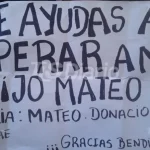 E AYUDAS A
PERAR A M
IJO MATEO
IA: MATEO. DONACIO
... GRACIAS BENDI